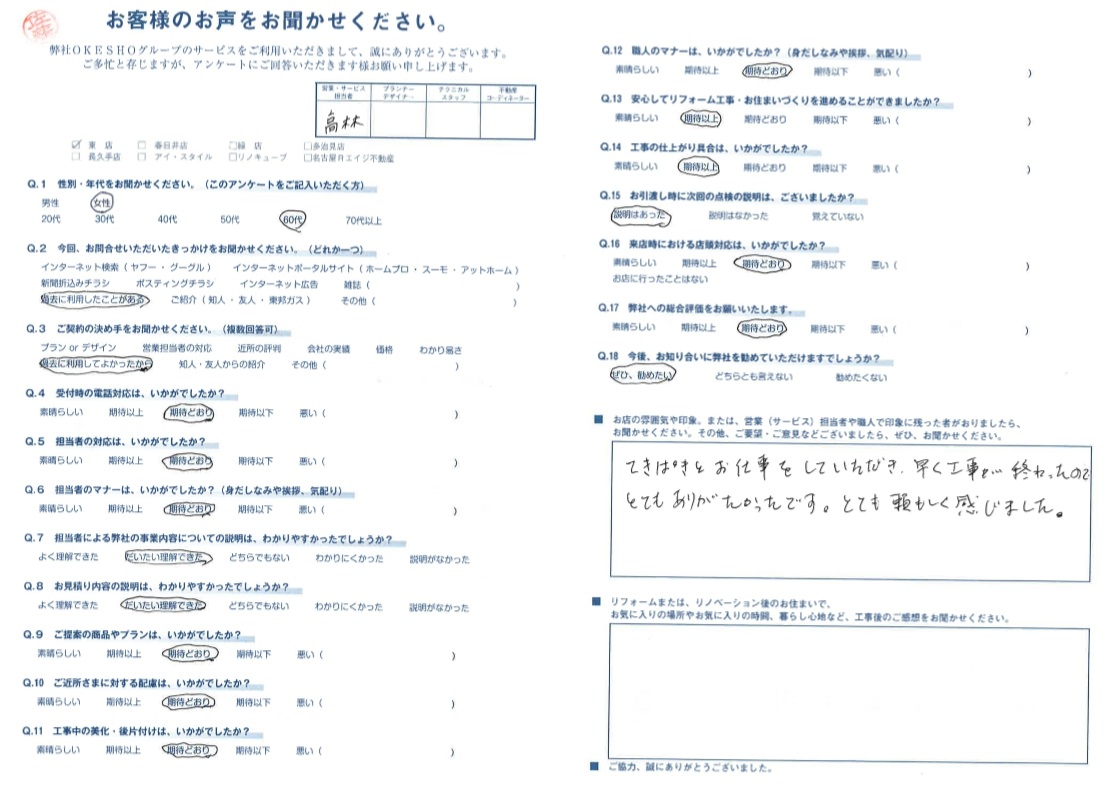 お客様のお声をお聞かせください。
弊社OKESHOグループのサービスをご利用いただきまして、誠にありがとうございます。
ご多忙と存じますが、アンケートにご回答いただきます様お願い申し上げます。
営業・サービス担当者 プランナーデザイナー テクニカルスタッフ 不動産コーディネーター
高林
☑ 東 店 □ 春日井店 □緑 店 □多治見店
□ 長久手店 □ アイ・スタイル □リノキューブ □名古屋Rエイジ不動産
Q.1 性別・年代をお聞かせください。(このアンケートをご記入いただく方)
男性 女性
20代 30代 40代 50代 60代 70代以上
Q.2 今回、お問合せいただいたきっかけをお聞かせください。(どれか一つ)
インターネット検索(ヤフー・グーグル) インターネットポータルサイト(ホームプロ・スーモ・アットホーム)
新聞折込みチラシ ポスティングチラシ インターネット広告 雑誌( )
過去に利用したことがある ご紹介(知人・友人・東邦ガス) その他( )
Q.3 ご契約の決め手をお聞かせください。(複数回答可)
プラン or デザイン 営業担当者の対応 近所の評判 会社の実績 価格 わかり易さ
過去に利用してよかったから 知人・友人からの紹介 その他( )
Q.4 受付時の電話対応は、いかがでしたか?
素晴らしい 期待以上 期待どおり 期待以下 悪い( )
Q.5 担当者の対応は、いかがでしたか?
素晴らしい 期待以上 期待どおり 期待以下 悪い( )
Q.6 担当者のマナーは、いかがでしたか?(身だしなみや挨拶、気配り)
素晴らしい 期待以上 期待どおり 期待以下 悪い( )
Q.7 担当者による弊社の事業内容についての説明は、わかりやすかったでしょうか?
よく理解できた だいたい理解できた どちらでもない わかりにくかった 説明がなかった
Q.8 お見積り内容の説明は、わかりやすかったでしょうか?
よく理解できた だいたい理解できた どちらでもない わかりにくかった 説明がなかった
Q.9 ご提案の商品やプランは、いかがでしたか?
素晴らしい 期待以上 期待どおり 期待以下 悪い( )
Q.10 ご近所さまに対する配慮は、いかがでしたか?
素晴らしい 期待以上 期待どおり 期待以下 悪い( )
Q.11 工事中の美化・後片付けは、いかがでしたか?
素晴らしい 期待以上 期待どおり 期待以下 悪い( )
Q.12 職人のマナーは、いかがでしたか?(身だしなみや挨拶、気配り)
素晴らしい 期待以上 期待どおり 期待以下 悪い( )
Q.13 安心してリフォーム工事・お住まいづくりを進めることができましたか?
素晴らしい 期待以上 期待どおり 期待以下 悪い( )
Q.14 工事の仕上がり具合は、いかがでしたか?
素晴らしい 期待以上 期待どおり 期待以下 悪い( )
Q.15 お引渡し時に次回の点検の説明は、ございましたか?
説明はあった 説明はなかった 覚えていない
Q.16 来店時における店頭対応は、いかがでしたか?
素晴らしい 期待以上 期待どおり 期待以下 悪い( )
お店に行ったことはない
Q.17 弊社への総合評価をお願いいたします。
素晴らしい 期待以上 期待どおり 期待以下 悪い( )
Q.18 今後、お知り合いに弊社を勧めていただけますでしょうか?
ぜひ、勧めたい どちらとも言えない 勧めたくない
■ お店の雰囲気や印象。または、営業(サービス)担当者や職人で印象に残った者がおりましたら、
お聞かせください。その他、ご要望・ご意見などございましたら、ぜひ、お聞かせください。
てきぱきとお仕事をしていただき、早く工事が終わったので
とてもありがたかったです。とても頼もしく感じました。
■ リフォームまたは、リノベーション後のお住まいで、
お気に入りの場所やお気に入りの時間、暮らし心地など、工事後のご感想をお聞かせください。
■ ご協力、誠にありがとうございました。